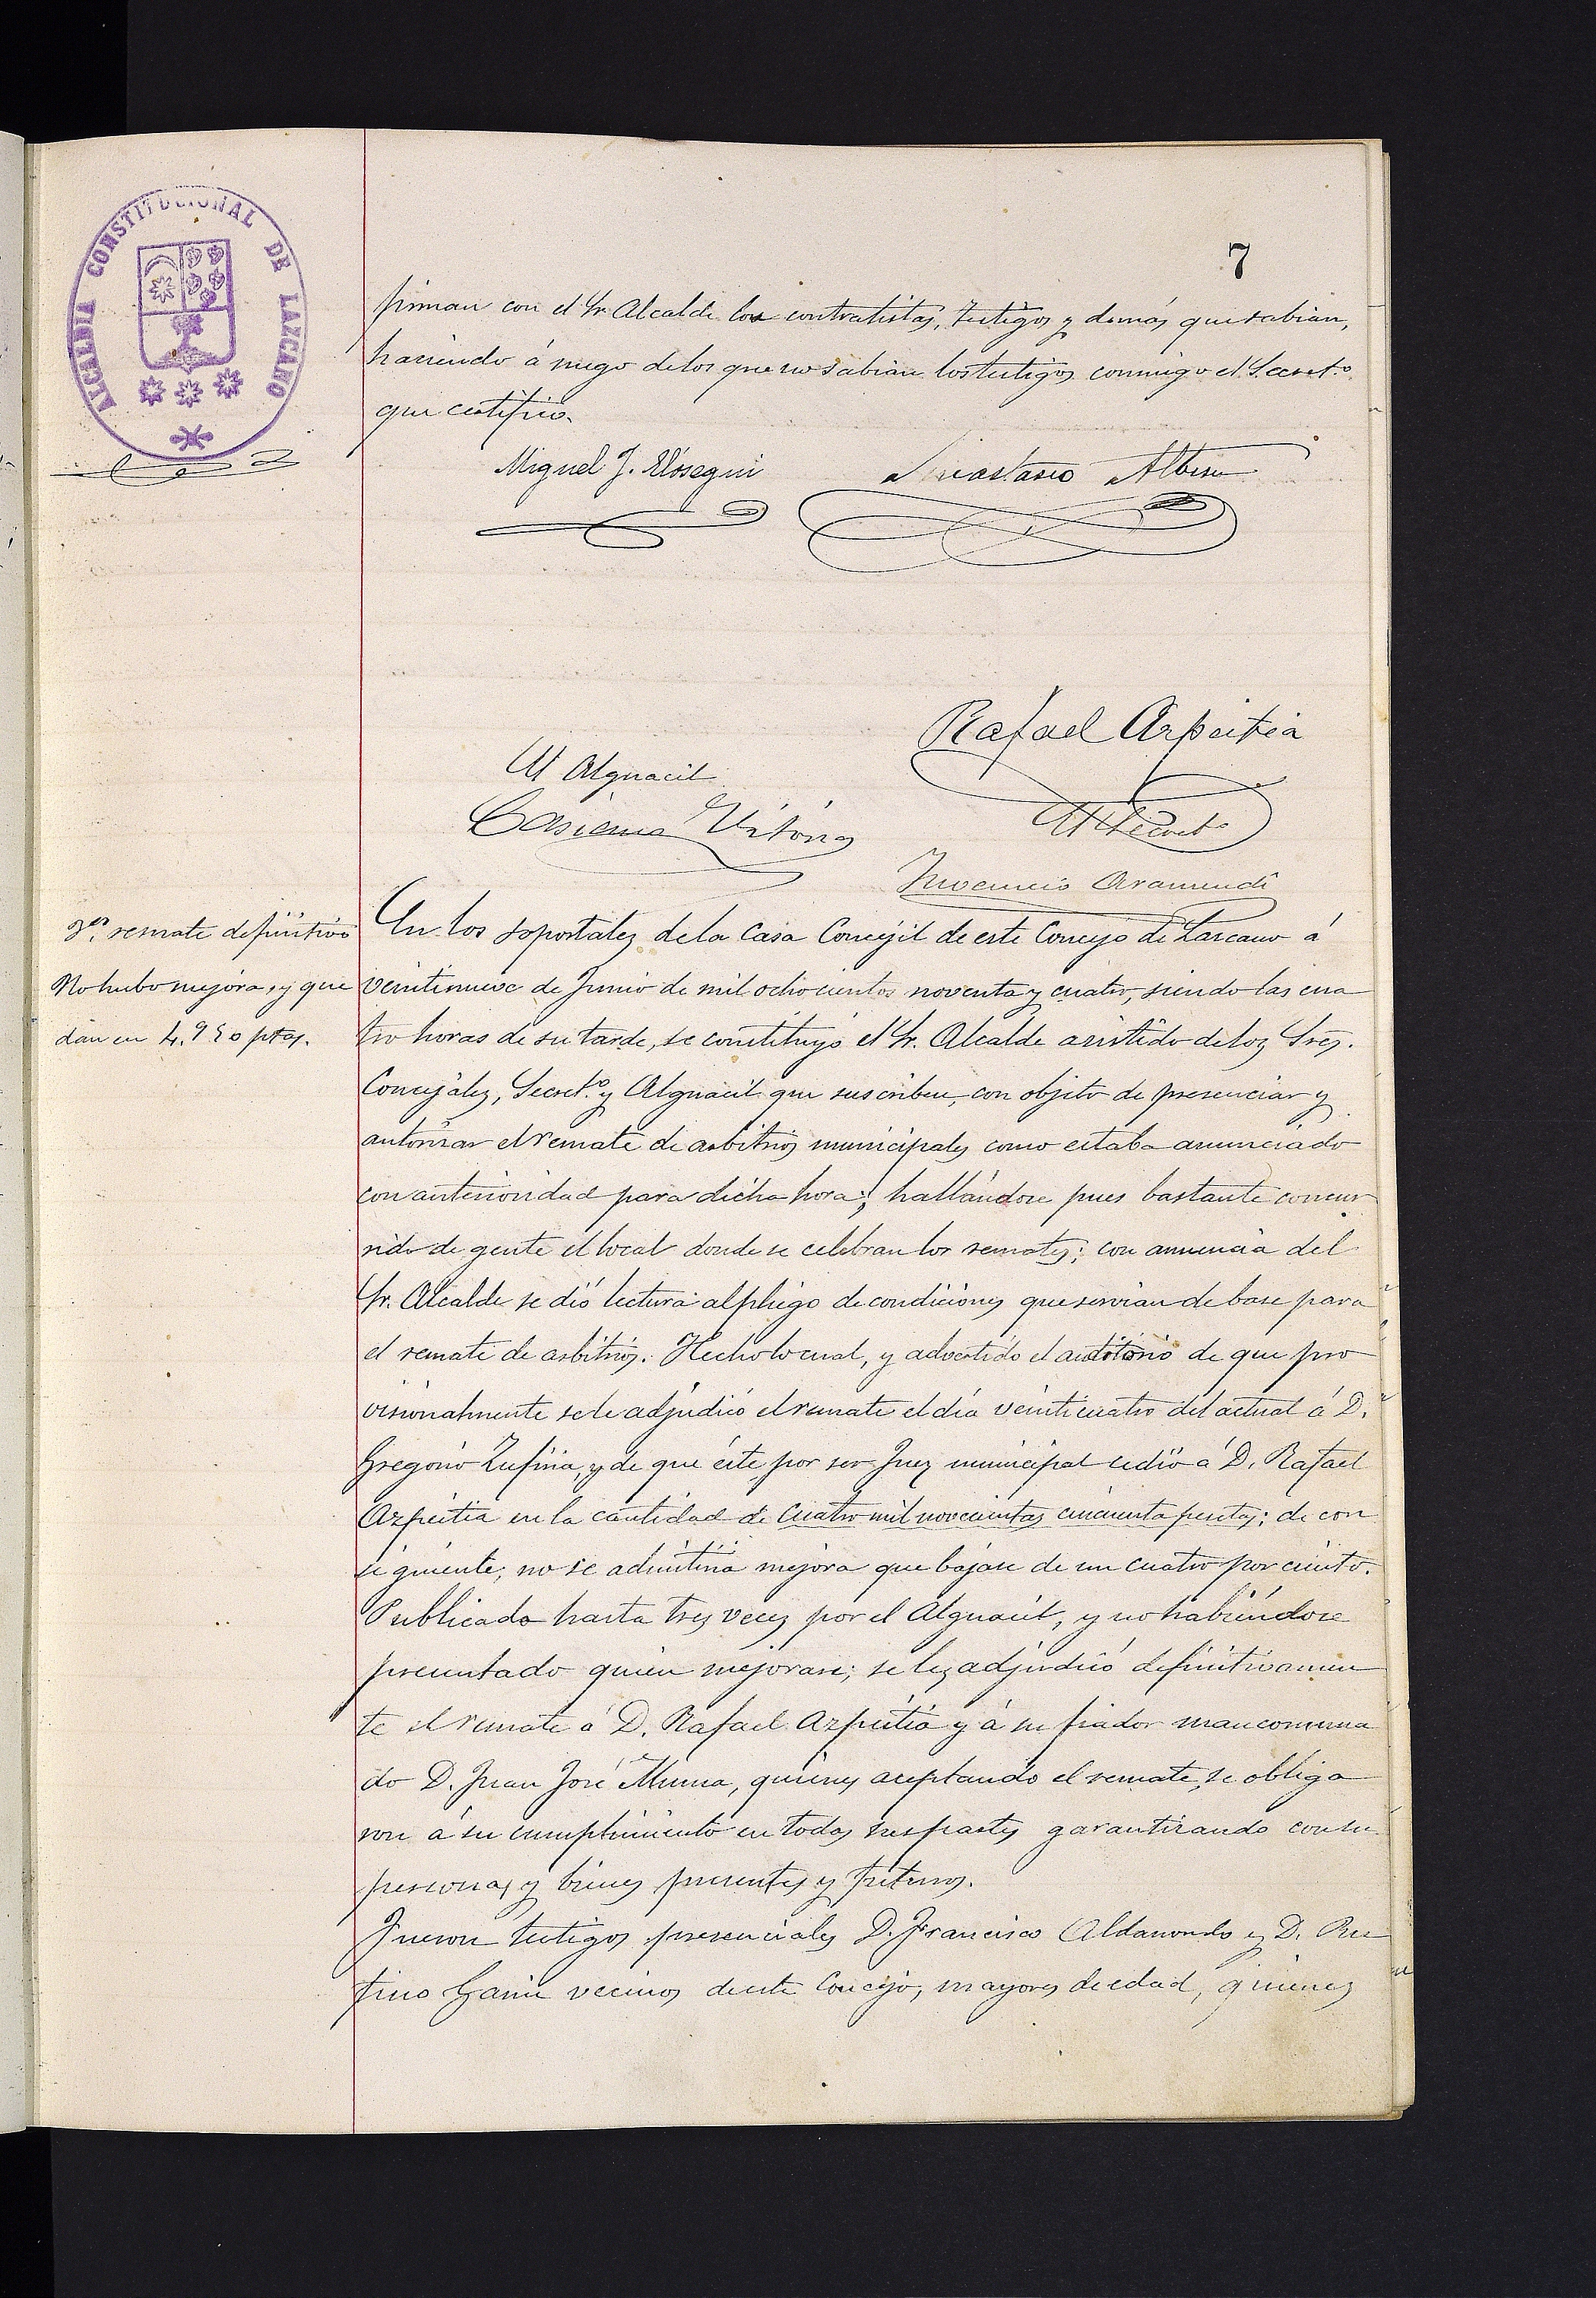 ALCALDIA CONSTITUCIONAL DE LAZCANO
7
firman con el Sr. Alcalde los contratistas, testigos y demás que sabian,
haciendo á ruego de los que no sabian los testigos conmigo el Secret.o
que certifico.
Miguel J. Elósegui
Anastasio Albisu
Rafael Azpeitia
El Alguacil
Casiano Vitoria
El Secret.o
Inocencio Aramendi
remate definitivo
No hubo mejora, y que
dan en 4.950 ptas.
En los soportales de la Casa Concejil de este Concejo de Lazcano á
veintinueve de Junio de mil ochocientos noventa y cuatro, siendo las cua
tro horas de su tarde, se constituyó el Sr. Alcalde asistido de los Sres.
Concejales, Secret.o y Alguacil que suscriben, con objeto de presenciar y
autorizar el remate de arbitrios municipales como estaba anunciado
con anterioridad para dicha hora; hallándose pues bastante concur
rido de gente el local donde se celebran los remates; con anuencia del
Sr. Alcalde se dió lectura al pliego de condiciones que servian de base para
el remate de arbitrios. Hecho lo cual, y advertido el auditorio de que pro
visionalmente se le adjudicó el remate el día veinticuatro del actual á D.
Gregorio Zufiria, y de que éste por ser Juez municipal cedió á D. Rafael
Azpeitia en la cantidad de cuatro mil novecientas cincuenta pesetas; de con
siguiente, no se admitiria mejora que bajase de un cuatro por ciento.
Publicado hasta tres veces por el Alguacil, y no habiéndose
presentado quien mejorase; se les adjudicó definitivamen
te el remate á D. Rafael Azpeitia y á su fiador mancomuna
do D. Juan José Munoa, quienes aceptando el remate, se obliga
ron á su cumplimiento en todas sus partes garantizando con su
personas y bienes presentes y futuros.
Fueron testigos presenciales D. Francisco Aldanondo y D. Ru
fino Garin vecinos de este Concejo, mayores de edad, quienes